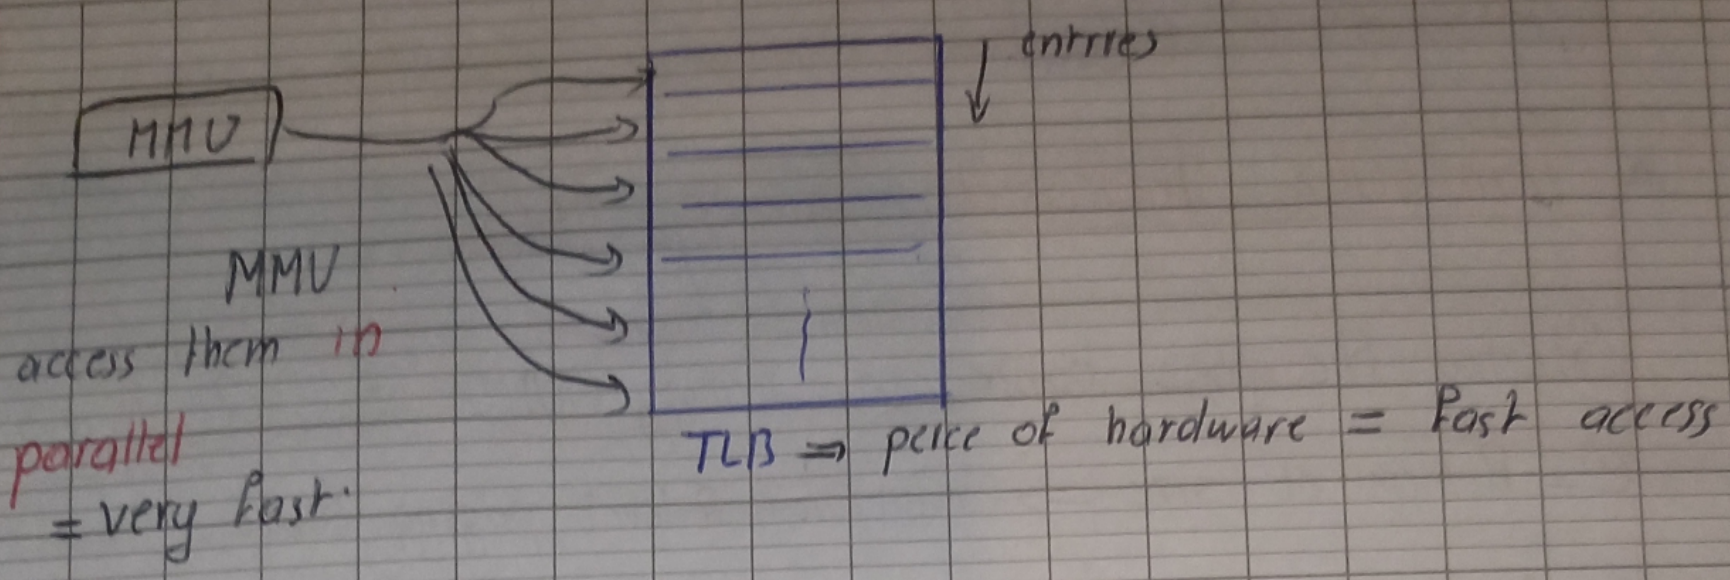 entrries
MMU
MMU
access them in
parallel
= very fast.
TLB => peice of hardware = fast access